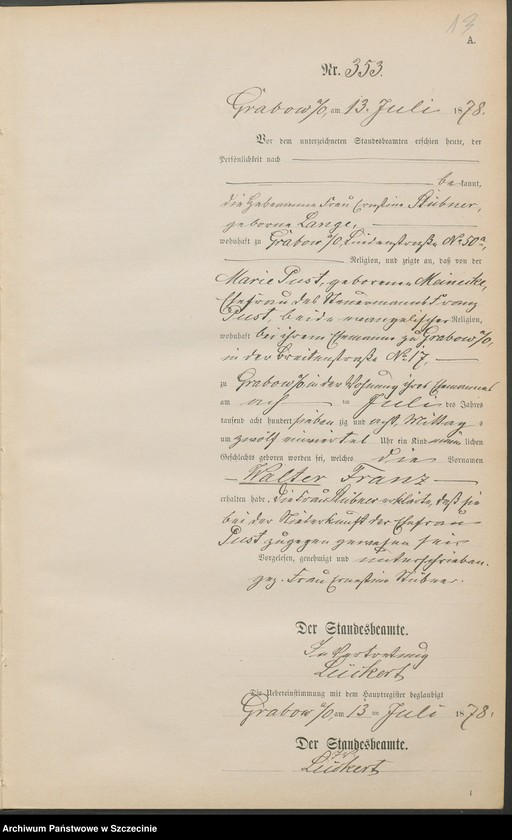 13
A.
Nr. 353.
Grabow a/O, am 13. Juli 1878.
Vor dem unterzeichneten Standesbeamten erschien heute, der
Persönlichkeit nach
bekannt,
die Hebamme Frau Ernstine Stübner,
geborne Lange,
wohnhaft zu Grabow a/O, Lindenstraße No. 50a,
Religion, und zeigte an, daß von der
Marie Pust, geborenen Meincke,
Ehefrau des Steuermanns Franz
Pust, beide evangelischer Religion,
wohnhaft bei ihrem Ehemanne zu Grabow a/O,
in der Breitenstraße No. 17,
zu Grabow a/O in der Wohnung ihres Ehemannes
am acht ten Juli des Jahres
tausend acht hundert sieben zig und acht, Mittags
um zwölf einviertel Uhr ein Kind männlichen
Geschlechts geboren worden sei, welches die Vornamen
Walter Franz
erhalten habe. Die Frau Stübner erklärte, daß sie
bei der Niederkunft der Ehefrau
Pust zugegen gewesen sei.
Vorgelesen, genehmigt und unterschrieben.
gez. Frau Ernestine Stübner.
Der Standesbeamte.
In Vertretung
Lückert
Die Uebereinstimmung mit dem Hauptregister beglaubigt
Grabow a/O, am 13 ten Juli 1878.
Der Standesbeamte.
Lückert
Archiwum Państwowe w Szczecinie